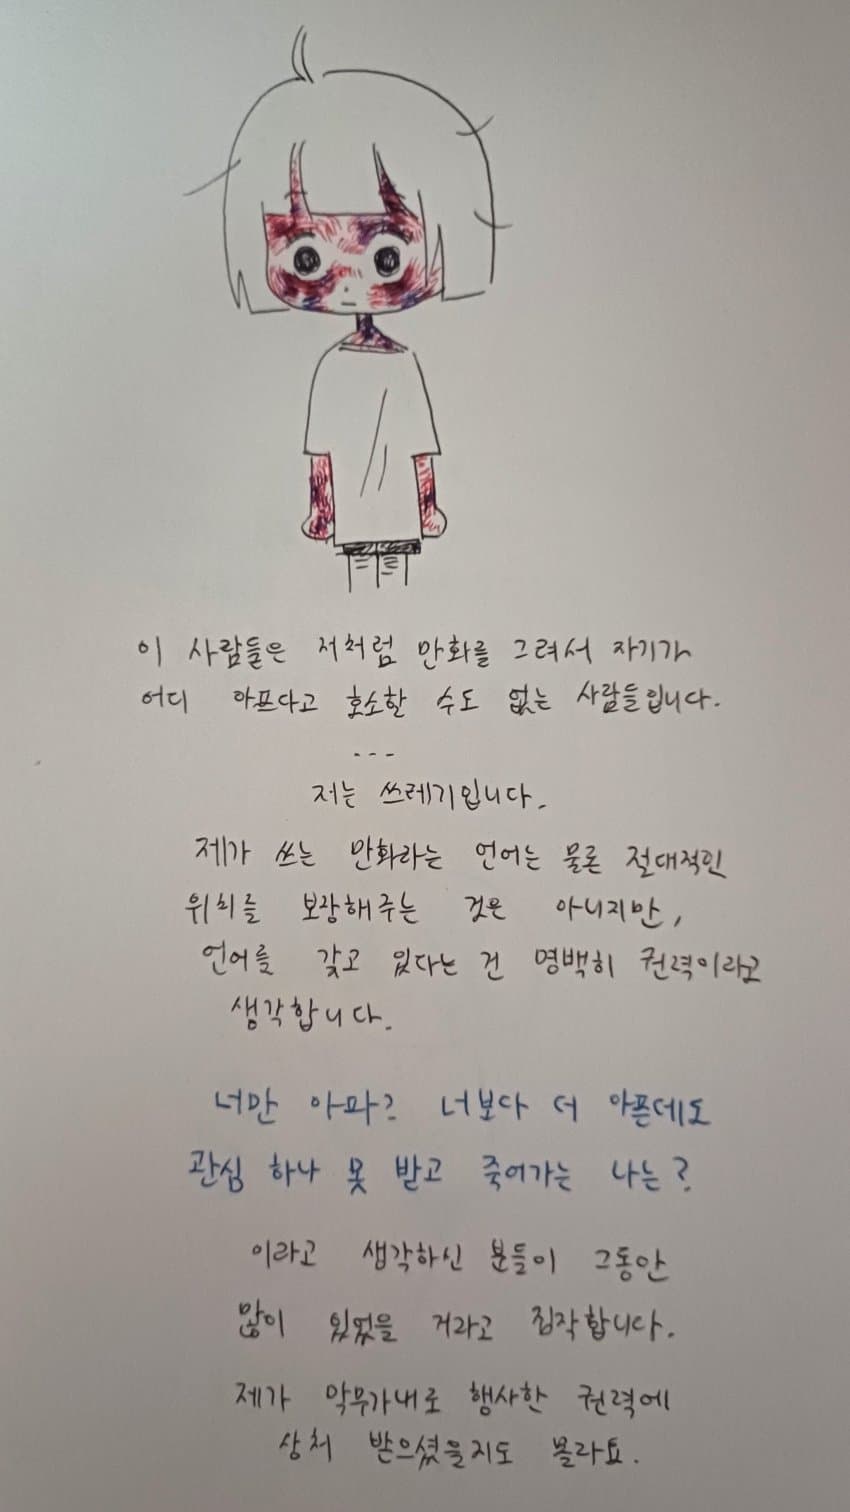 이 사람들은 저처럼 만화를 그려서 자기가
어디 아프다고 호소할 수도 없는 사람들입니다.
...
저는 쓰레기입니다.
제가 쓰는 만화라는 언어는 물론 절대적인
위치를 보장해주는 것은 아니지만,
언어를 갖고 있다는 건 명백히 권력이라고
생각합니다.
너만 아파? 너보다 더 아픈데도
관심 하나 못 받고 죽어가는 나는?
이라고 생각하신 분들이 그동안
많이 있었을 거라고 짐작합니다.
제가 막무가내로 행사한 권력에
상처 받으셨을지도 몰라요.